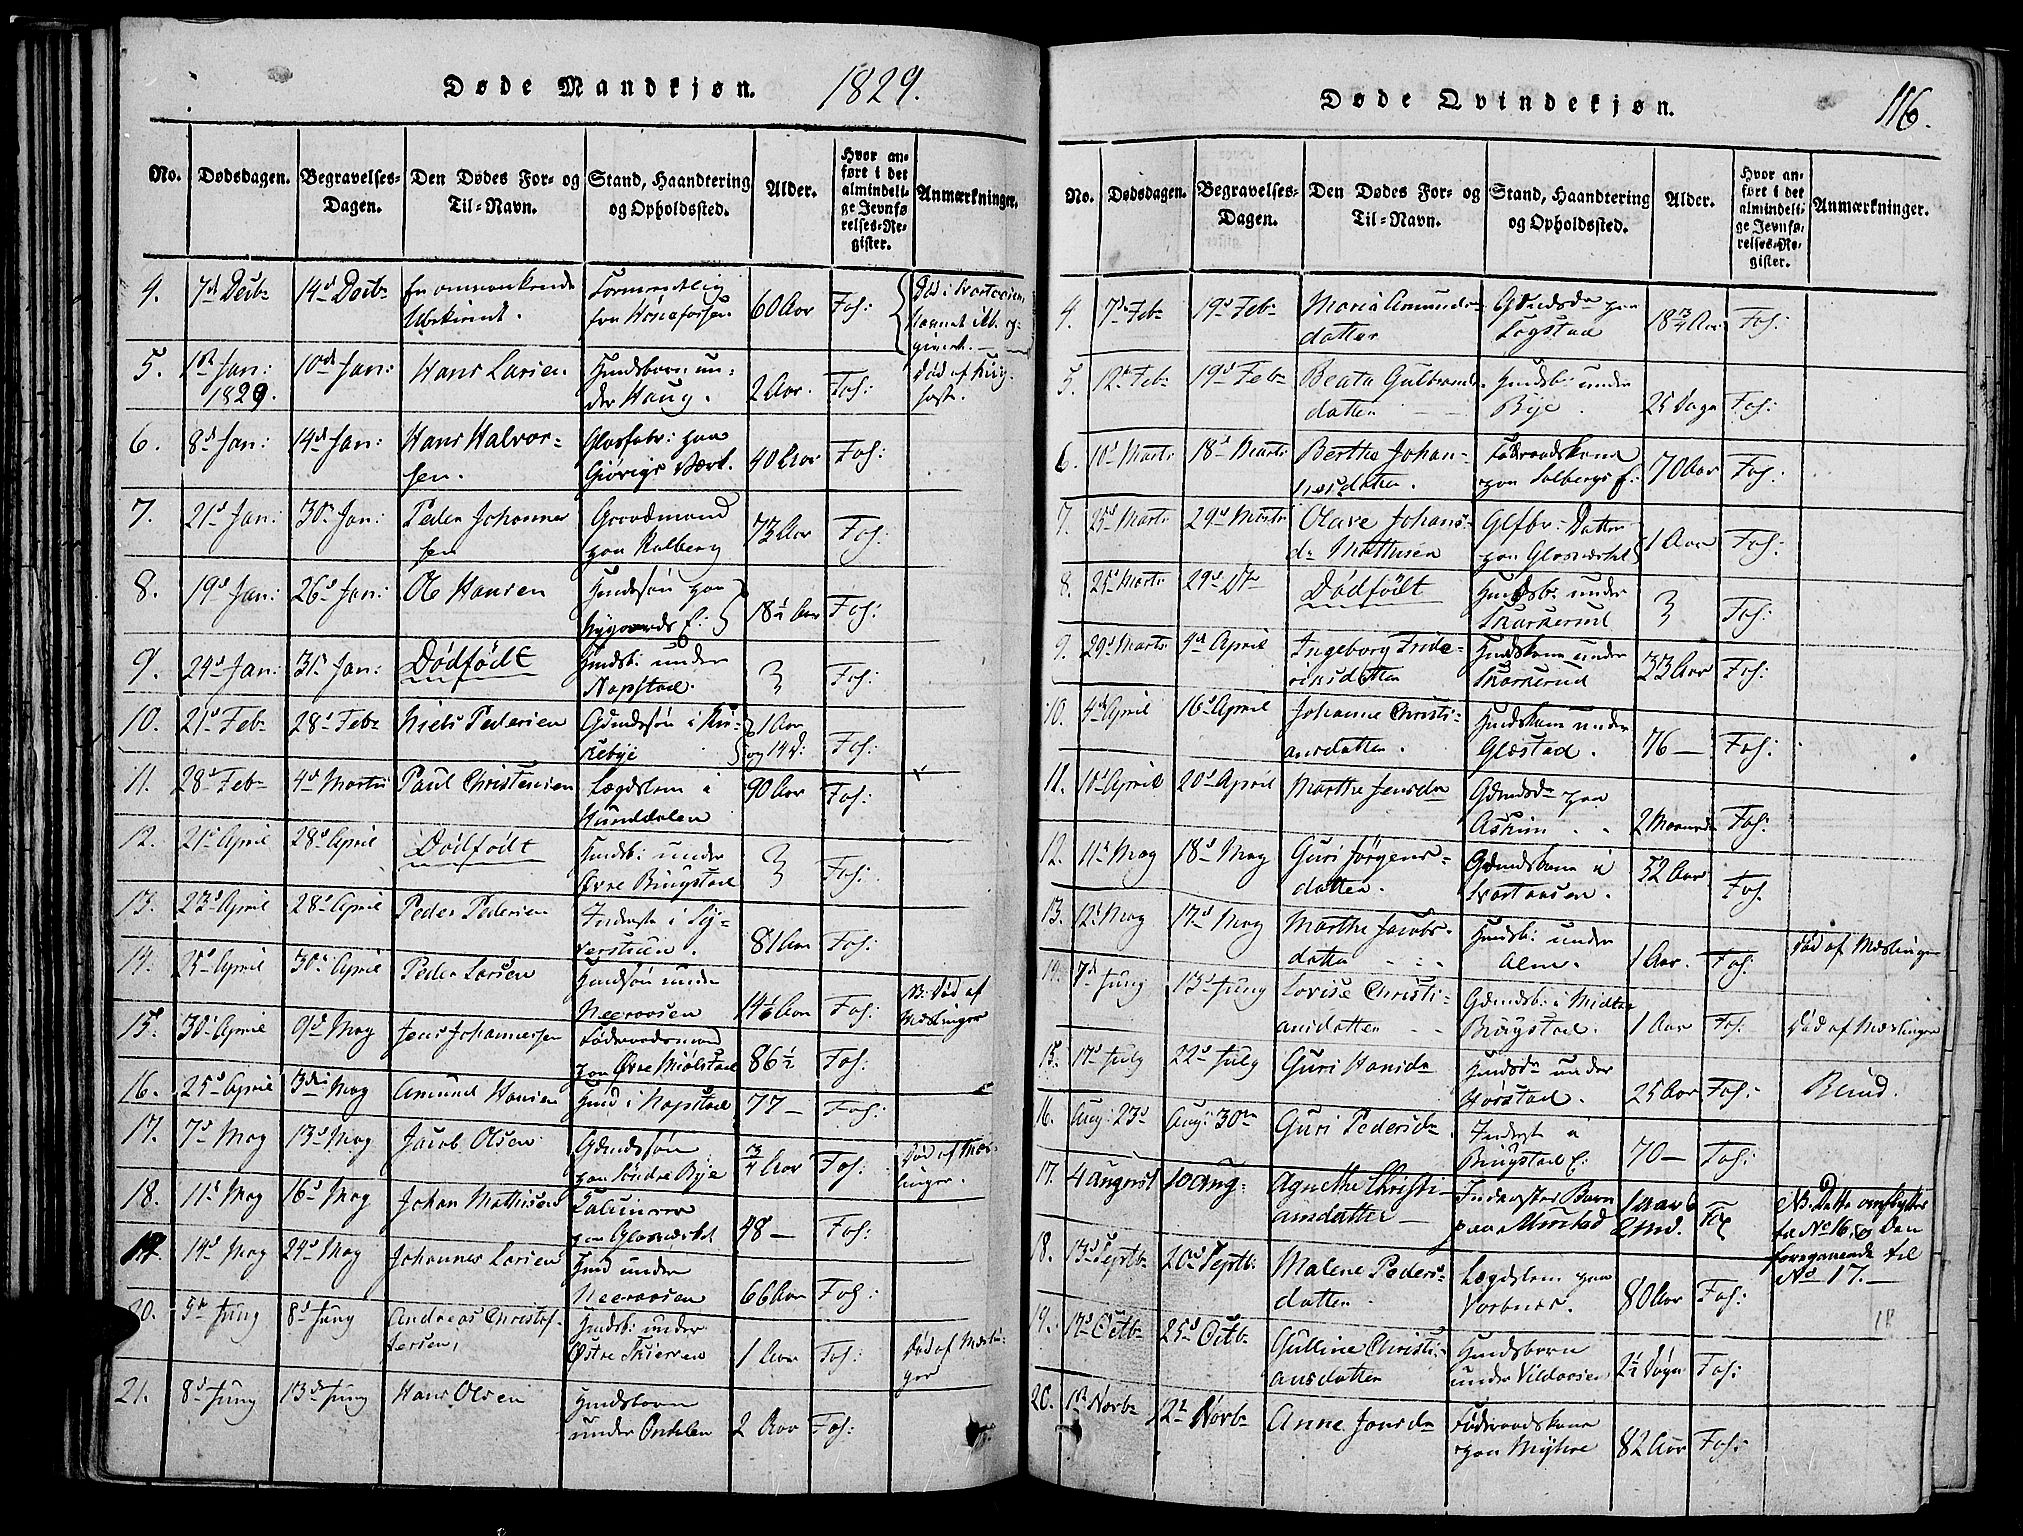 Døde Mandkjøn. 1829.
No. Dødsdagen. Begravelses-Dagen. Den Dødes For- og Til-Navn. Stand, Haandtering og Opholdssted. Alder. Hvor anført i det almindelige Jevnførelses-Register. Anmærkninger.
4. 7de Decbr 14d Decbr 60 Aar Foh:
5. 1st Jan: 1829. 10de Jan: Hans Larsen Huusbarn under Haug. 2 Aar. Foh: Død af Kighoste.
6. 8d Jan: 14d Jan: Hans Halvorsen. Glasfabr: paa Giövigs Værk. 40 Aar Foh:
7. 21d Jan: 30te Jan: Peder Johannessen Gaardmand paa Kalberg 73 Aar Foh:
8. 19d Jan: 26d Jan: Ole Hansen Huussøn paa Nygaards E: 18½ Aar Foh:
9. 24d Jan: 31t Jan: Dødfödt Huusb: under Napstad. 3 Foh:
10. 21d Feb 28d Feb Niels Pedersen Gdmdssøn i 1 Aar og 14 d: Foh:
11. 28d Feb 4d Martii Paul Christensen Lægdslem i Hunddalen 90 Aar Foh:
12. 21d April 28d April Dødfödt Huusb: under Øvre Bingstad 3 Foh:
13. 23d April 28d April Peder Pedersen Inderste i 81 Aar Foh:
14. 25d April 30te April Peder Larsen Huussøn under Neeraasen 14½ Aar Foh: NB: Død af Mæslinger
15. 30te April 9d May Jens Johannessen Föderaadsmand paa Øvre Miölstad 86½ Foh:
16. 25d April 3die May Amund Hansen Huusmd i Napstad 77 — Foh:
17. 7d May 13d May Jacob Olsen Gdmdssøn paa Søndre Bye ¾ Aar Foh: Død af Mæslinger.
18. 11t May 16d May Johan Mathisen paa Glasværket 48 — Foh:
19. 14d May 24d May Johannes Larsen Huusmd under Neeraasen 66 Aar Foh:
20. 5te Juny 8d Juny Andreas Christoffersen Huusb: under Østre Skierven 1 Aar Foh: Død af Mæslinger
21. 8d Juny 13d Juny Hans Olsen Huusbarn under 2 Aar Foh:
Døde Qvindekjøn. 116.
No. Dødsdagen. Begravelses-Dagen. Den Dødes For- og Til-Navn. Stand, Haandtering og Opholdssted. Alder. Hvor anført i det almindelige Jevnførelses-Register. Anmærkninger.
4. 7de Feb 19d Feb Maria Amundsdatter Gdmdsdr paa Sogstad 18¾ Aar Foh:
5. 12te Feb 19d Feb Beata Gulbrandsdatter Huusb: under Bye. 25 Dage Foh:
6. 10d Marts 18d Marts Berthe Johannesdatter. Föderaadskone paa Solbergs E: 70 Aar Foh:
7. 23d Marts 29d Marts Olave Johansdr Mathisen Glfbr: Datter paa Glasværket 1 Aar Foh:
8. 25d Marts 29d Dto Dødfödt Huusb: under Skarkerud 3 Foh:
9. 29d Marts 4d April Ingeborg Frideriksdatter Huuskone under Skarkerud 33 Aar Foh:
10. 4d April 16d April Johanne Christiansdatter. Huuskone under Glæstad. 76 — Foh:
11. 10d April 20d April Marthe Jensdr Gdmdsdr paa Askim 2 Maaneder Foh:
12. 11t May 18d May Guri Jörgensdatter. Gdmdskone i Svartaasen. 52 Aar Foh:
13. 12t May 17d May Marthe Jacobsdatter Huusb: under Alm. 1 Aar. Foh: Død af Mæslinger
14. 7d Juny 13d Juny Lovise Christiansdatter Gdmdsb: i Midtre Bingstad. 1 Aar Foh: Død af Mæslinger
15. 17d July 22d July Guri Hansdr Huusdr under Hörstad. 25 Aar Foh: Blind.
16. Aug: 23d Aug: 30te Guri Pedersdr Inderst i Bingstad E: 70 — Foh:
17. 4 August 10 Aug: Agnethe Christiansdatter — Inderstes Barn paa 1 aar & 2 Md. NB. Dette ombyttes til No 16, & den foregaaende til No 17. —
18. 13d Septb 20d Septb: Malene Pedersdatter. Lægdslem paa Vorbnes. 80 Aar Foh:
19. 17d Octb 25d Octb Gulline Christiansdatter Huusbarn under Vildaasen 2½ Døgn Foh:
20. 1st Novb 12te Novb Anne Jonsdr Föderaadskone paa Myhre 82 Aar Foh: